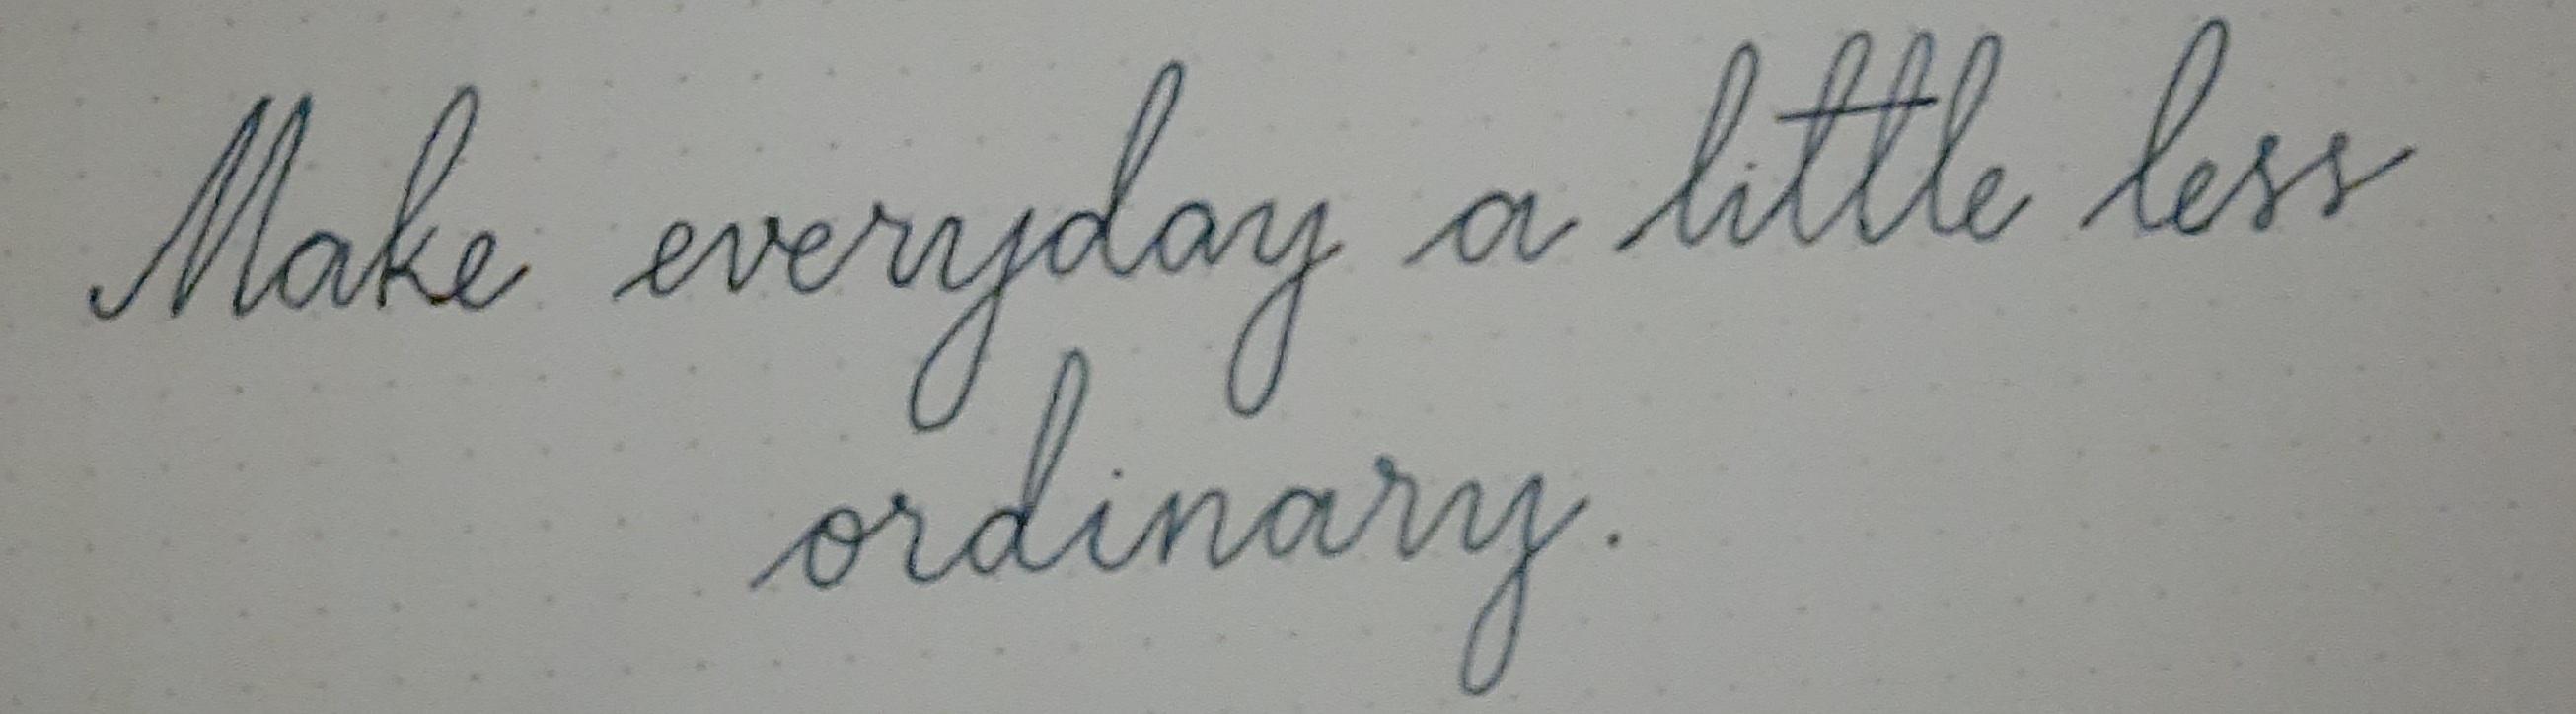 Make everyday a little less
ordinary.